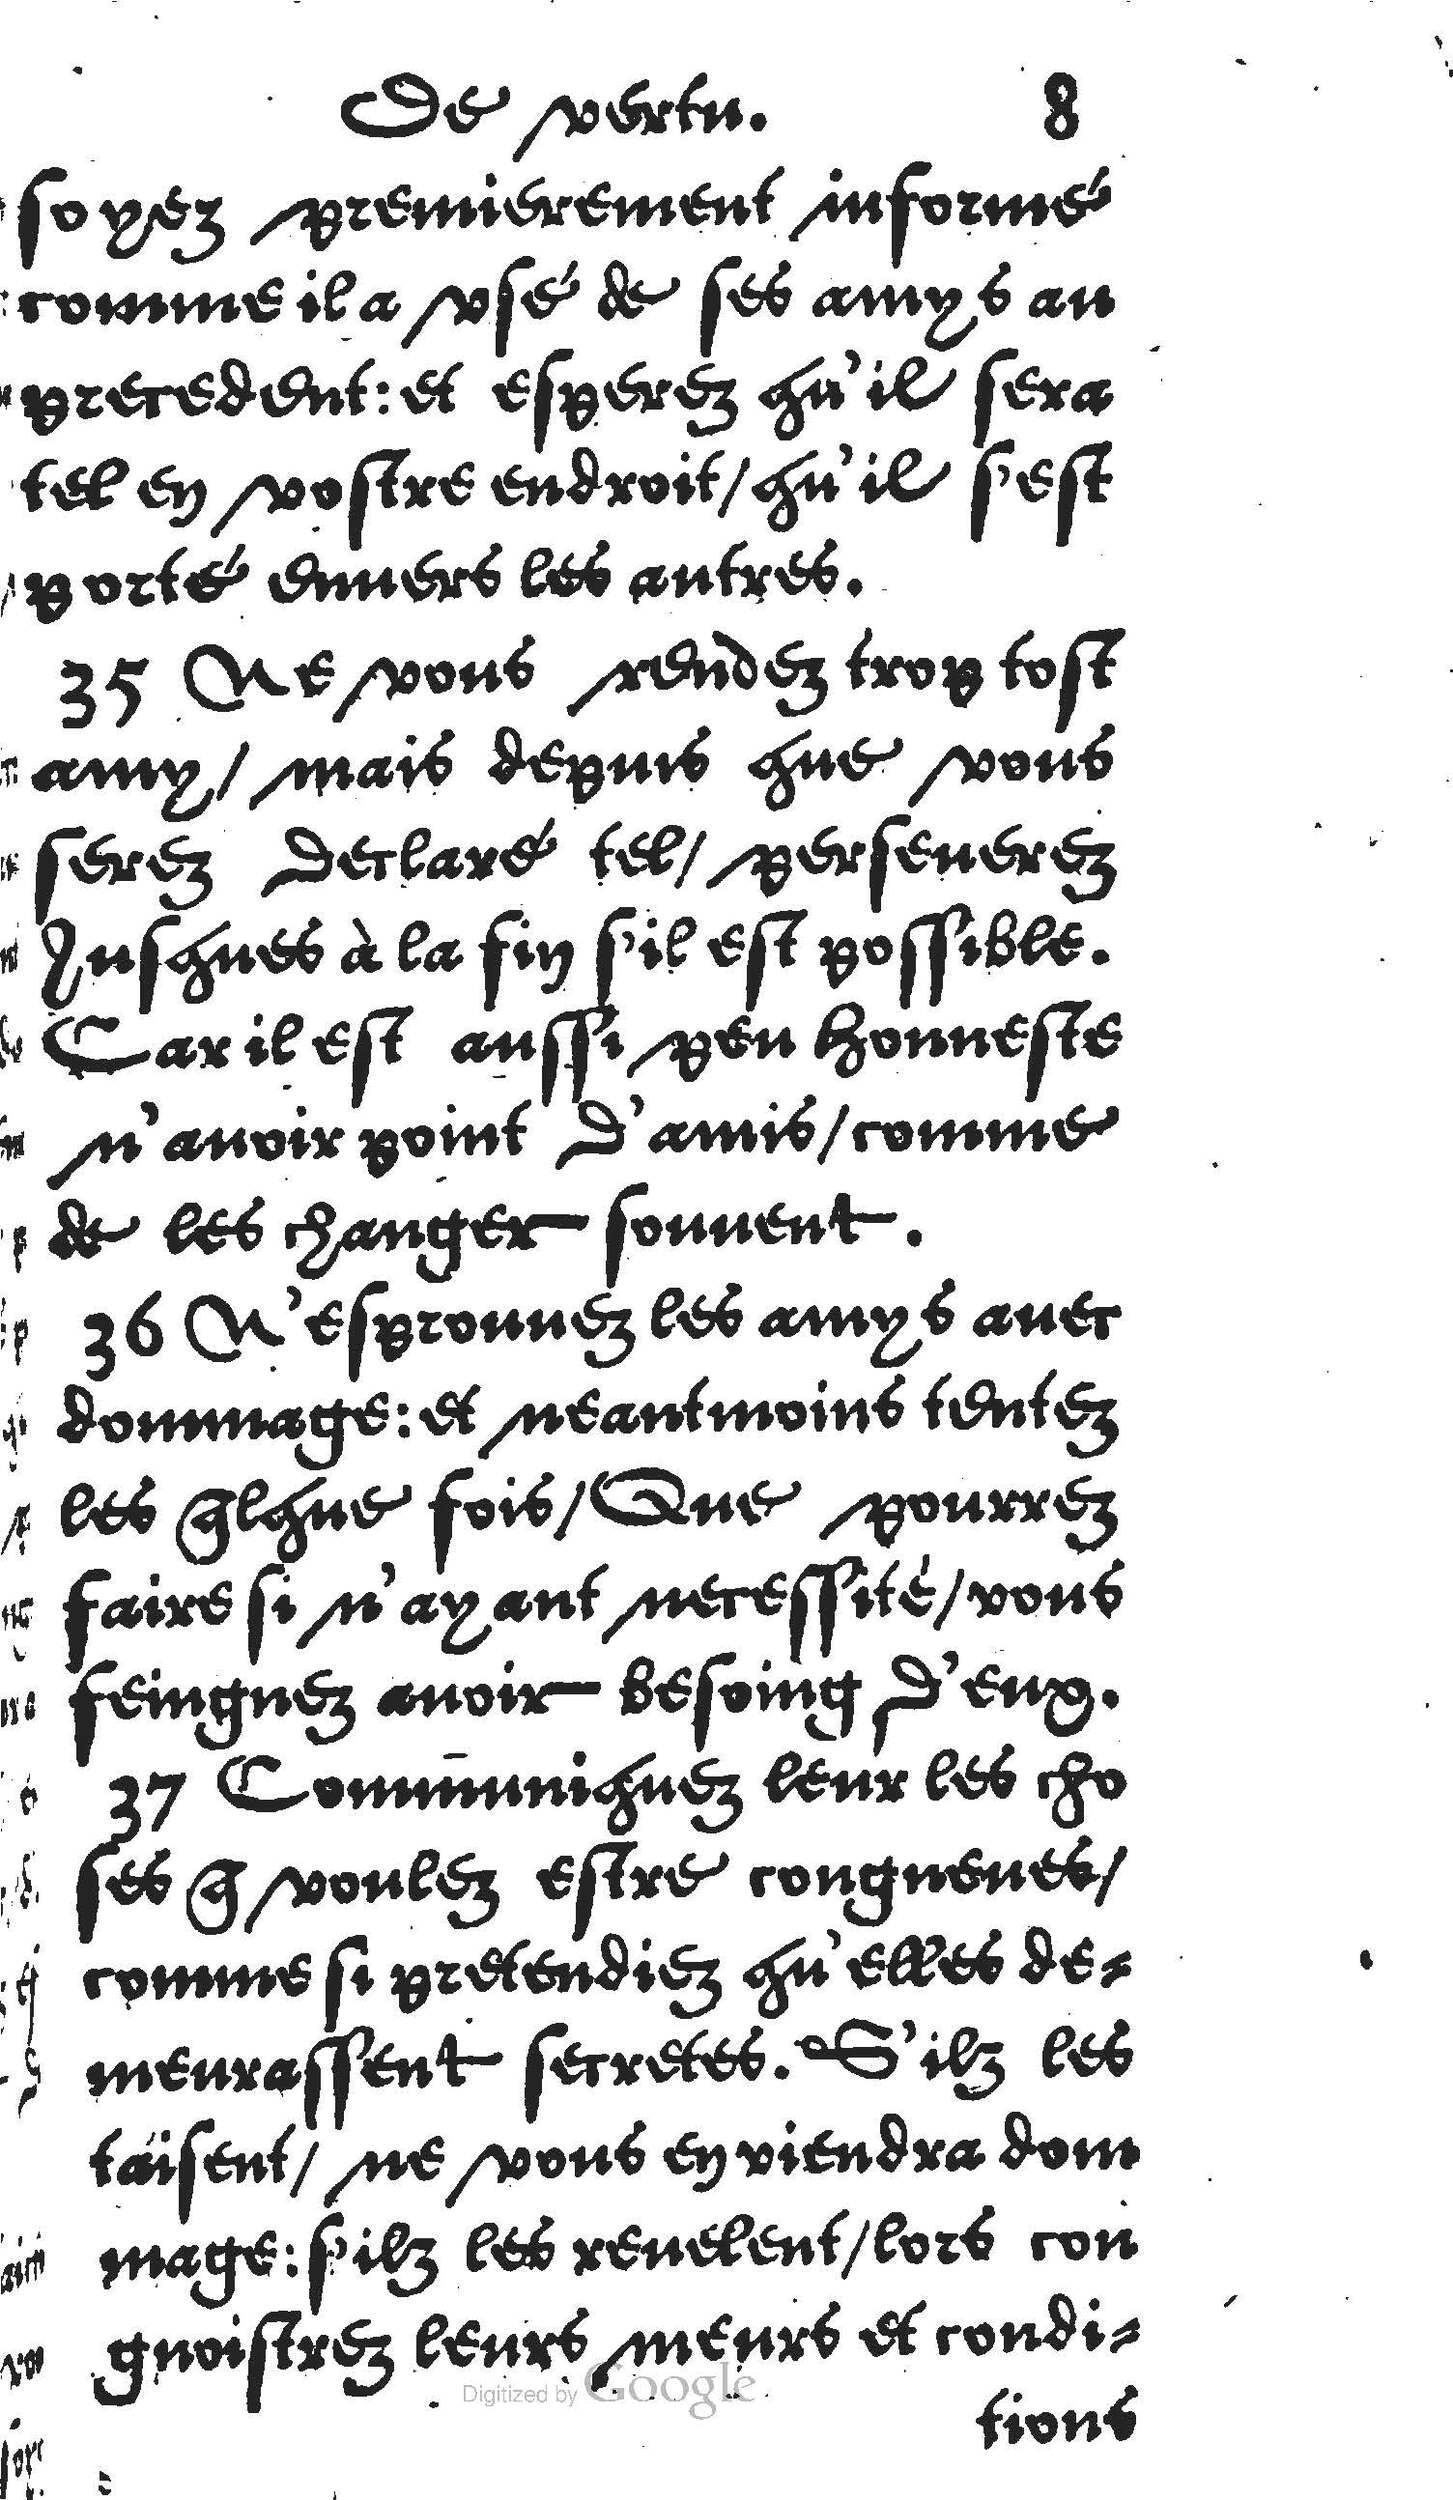 De vertu. 8
soyez premierement informé
comme il a vsé de ses amys au
precedent: et esperez qu'il sera
tel en vostre endroit/ qu'il s'est
porté enuers les autres.
35 Ne vous rendez trop tost
amy/ mais depuis que vous
serez declaré tel/ perseuerez
Jusques à la fin s'il est possible.
Car il est aussi peu honneste
n'auoir point d'amis/ comme
de les changer souuent.
36 N'esprouuez les amys auec
dommage: et neantmoins tentez
les q̃lque fois/ Que pourrez
faire si n'ayant necessité/ vous
feingnez auoir besoing d'eux.
37 Com̄uniquez leur les cho
ses q̃ voulez estre congneues/
comme si pretendiez qu'elles de=
meurassent secretes. S'ilz les
taisent/ ne vous en viendra dom
mage: s'ilz les reuelent/ lors con
gnoistrez leurs meurs et condi=
tions
Digitized by Google